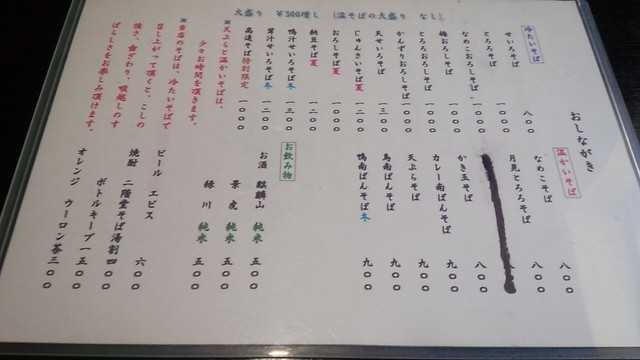 おしながき
冷たいそば
せいろそば 八〇〇
とろろそば 一〇〇〇
なめこおろしそば 一〇〇〇
梅おろしそば 一〇〇〇
とろろおろしそば 一〇〇〇
かんずりおろしそば 一〇〇〇
天せいろそば 一二〇〇
じゅんさいそば 夏 一二〇〇
おろしそば 夏
納豆そば 夏 一二〇〇
鴨汁せいろそば 冬 一三〇〇
茸汁せいろそば 冬 一二〇〇
高遠そば 特別限定 一〇〇〇
大盛り ¥300増し (温そばの大盛り なし)
※天ぷらと温かいそばは、
少々お時間を頂きます。
※当店のそばは、冷たいそばで
召し上がって頂くと、こしの
強さ、歯ざわり、喉越しのす
ばらしさをお楽しみ頂けます。
温かいそば
八〇〇
なめこそば 八〇〇
月見とろろそば
かき玉そば 八〇〇
カレー南ばんそば 九〇〇
天ぷらそば 九〇〇
鳥南ばんそば 九〇〇
鴨南ばんそば 冬 九〇〇
お飲み物
お酒 麒麟山 純米 五〇〇
景虎 純米 五〇〇
緑川 純米 五〇〇
ビール エビス 六〇〇
焼酎 二階堂そば湯割 四〇〇
ボトルキープ 一五〇〇
オレンジ ウーロン茶 三〇〇